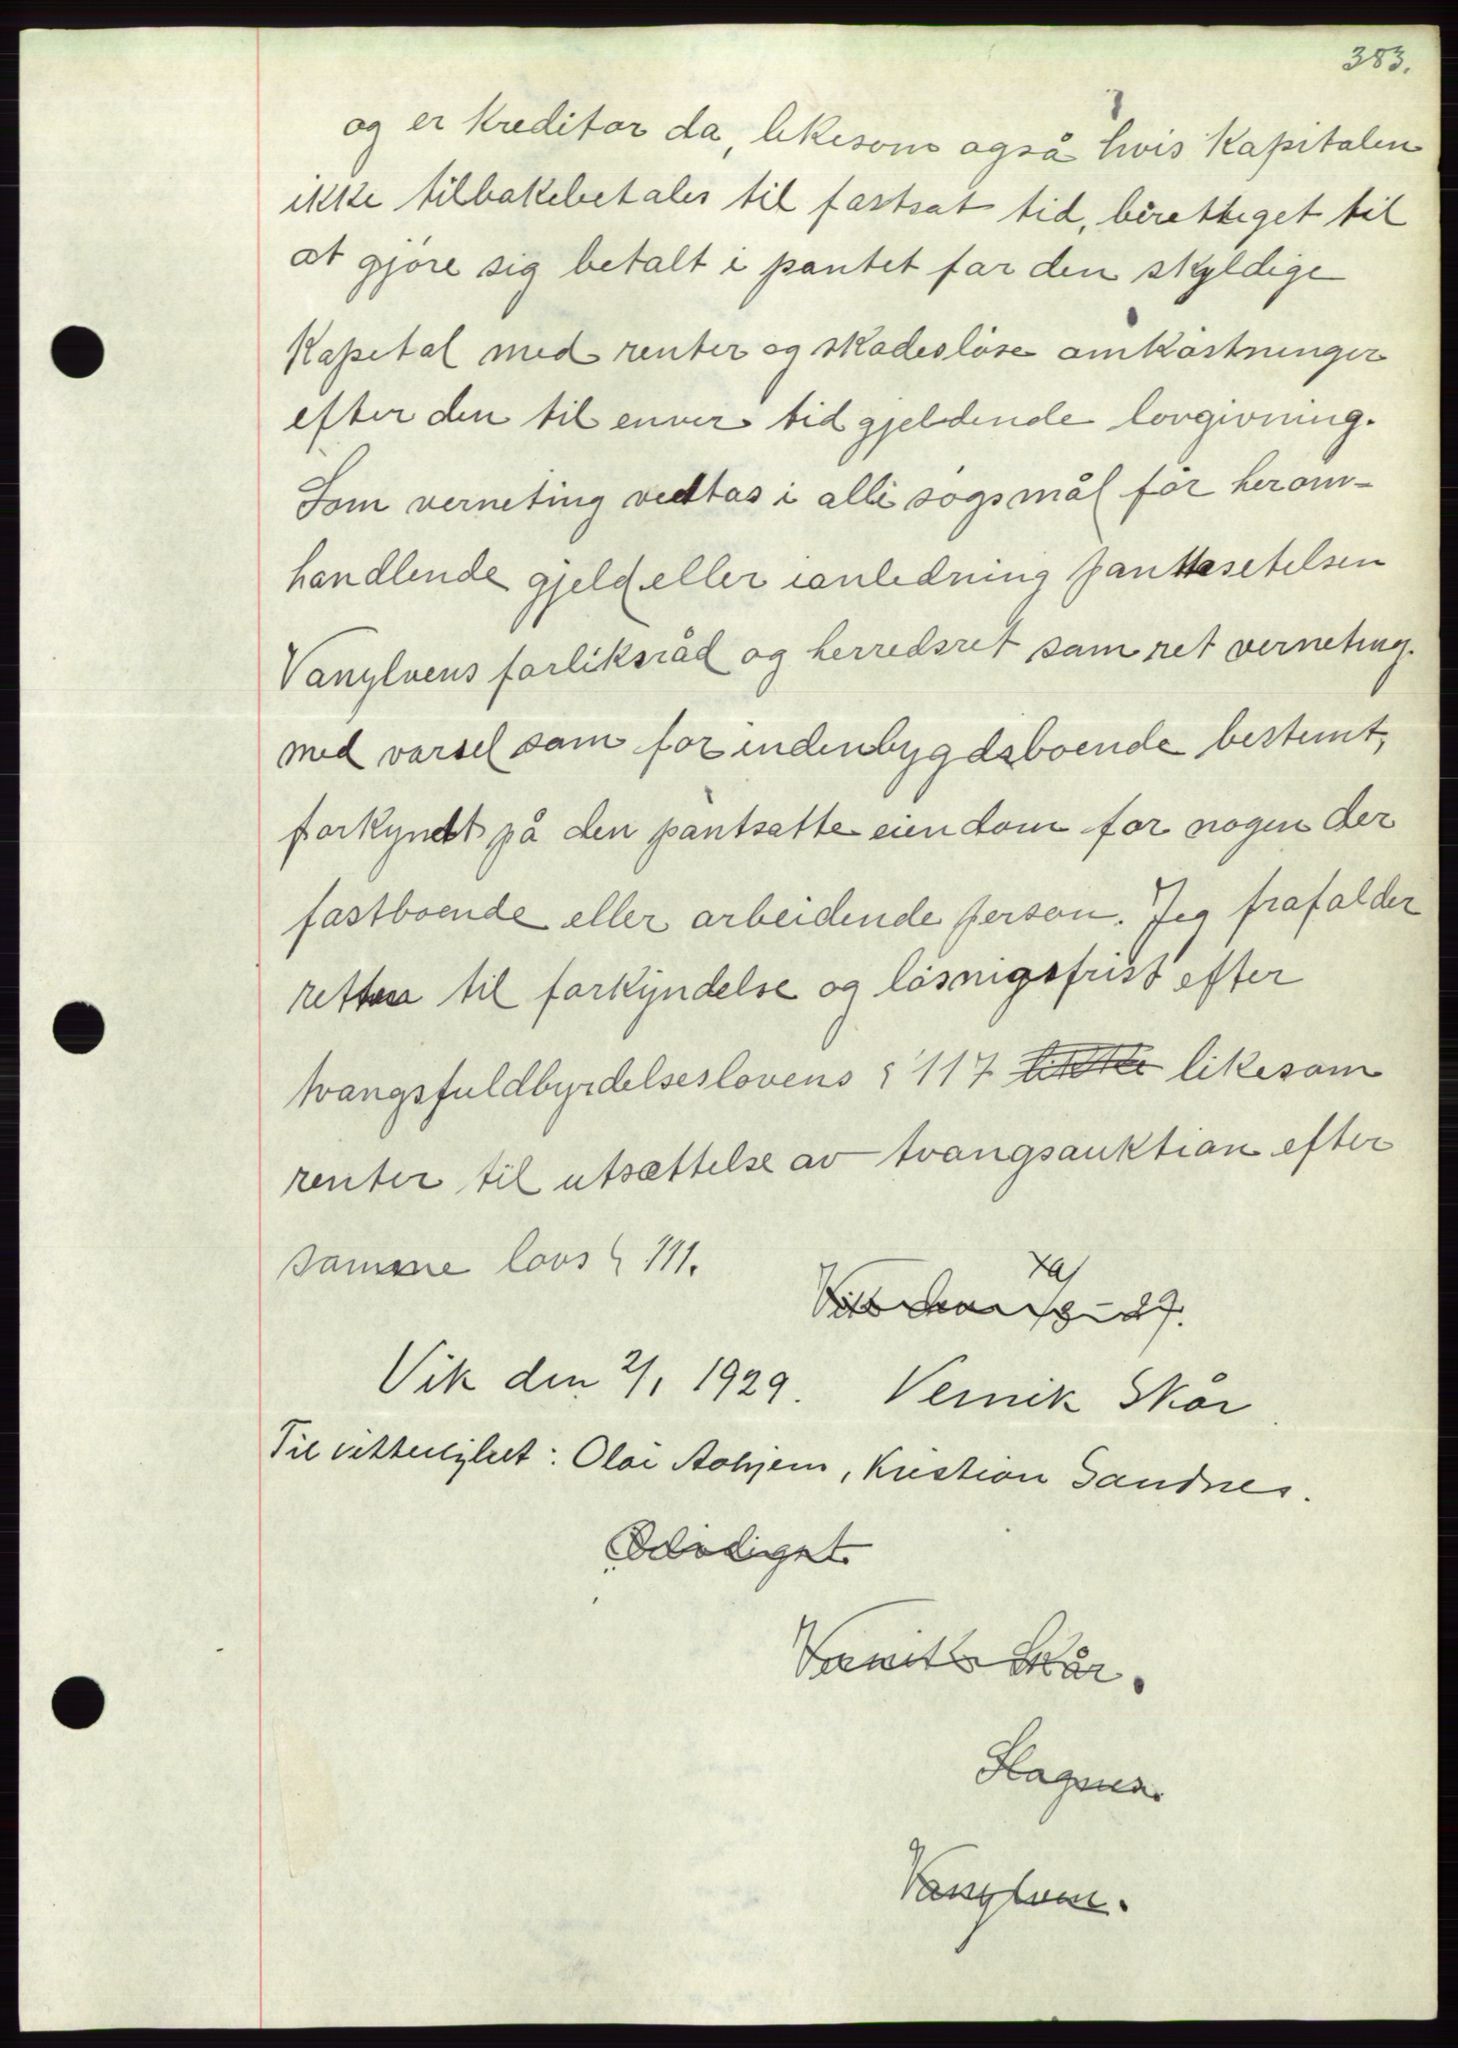 383.
og er kreditor da, likesom også hvis kapitalen
ikke tilbakebetales til fastsat tid, berettiget til
at gjøre sig betalt i pantet for den skyldige
Kapital med renter og skadesløse omkostninger
efter den til enver tid gjeldende lovgivning.
Som verneting vedtas i alle søgsmål for herom-
handlende gjeld eller ianledning panttesetelsen
Vanylvens forliksråd og herredsret som ret verneting.
med varsel som for indenbygdsboende bestemt,
forkyndt på den pantsatte eiendom for nogen der
fastboende eller arbeidende person. Jeg frafalder
retten til forkyndelse og løsnigsfrist efter
tvangsfuldbyrdelseslovens § 117 likesom
renter til utsættelse av tvangsauktion efter
samme lovs § 111.
Vik den 2/1 1929. Vernik Skår
Til vitterlighet: Olai Aahjem, Kristian Sandnes.
Vernik Skår.
Slagnes.
Vanylven.